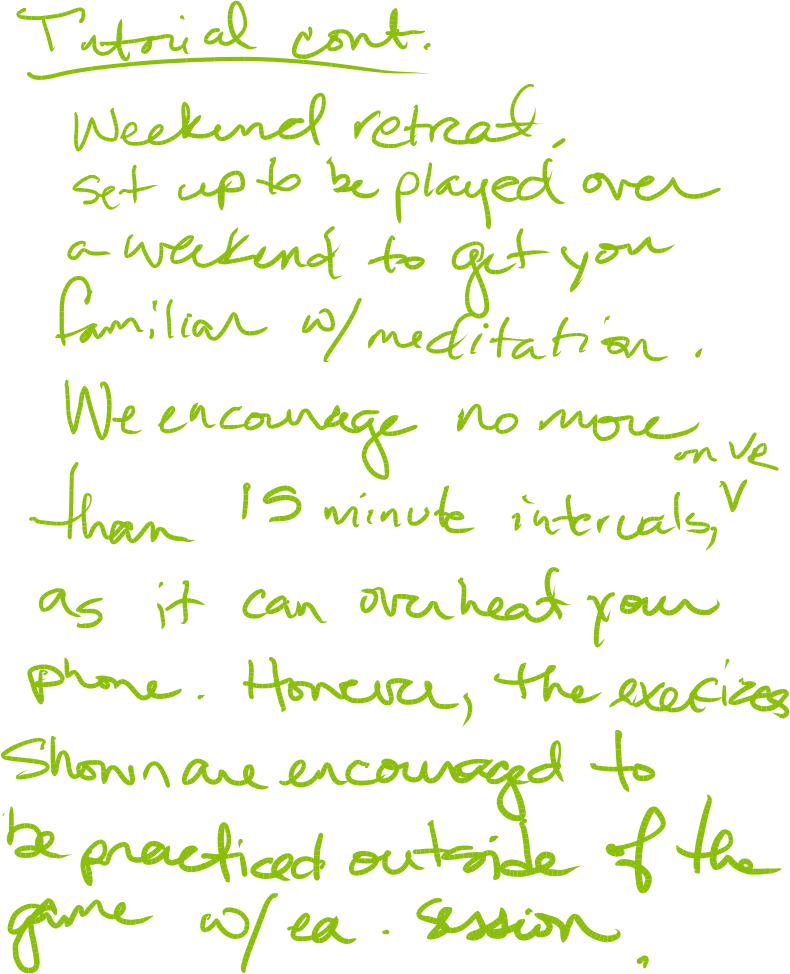 Tutorial cont.
Weekend retreat,
set up to be played over
a weekend to get you
familiar w/ meditation.
We encourage no more
than 15 minute intervals, on VR
as it can overheat your
phone. However, the exercizes
shown are encouraged to
be practiced outside of the
game w/ ea. session.